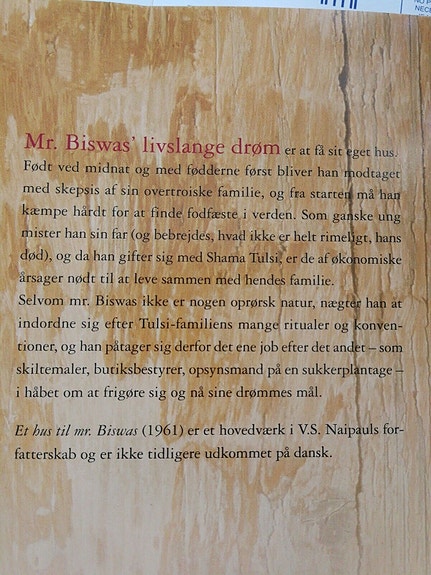 NO P
NECE
Mr. Biswas’ livslange drøm er at få sit eget hus.
Født ved midnat og med fødderne først bliver han modtaget
med skepsis af sin overtroiske familie, og fra starten må han
kæmpe hårdt for at finde fodfæste i verden. Som ganske ung
mister han sin far (og bebrejdes, hvad ikke er helt rimeligt, hans
død), og da han gifter sig med Shama Tulsi, er de af økonomiske
årsager nødt til at leve sammen med hendes familie.
Selvom mr. Biswas ikke er nogen oprørsk natur, nægter han at
indordne sig efter Tulsi-familiens mange ritualer og konven-
tioner, og han påtager sig derfor det ene job efter det andet – som
skiltemaler, butiksbestyrer, opsynsmand på en sukkerplantage –
i håbet om at frigøre sig og nå sine drømmes mål.
Et hus til mr. Biswas (1961) er et hovedværk i V.S. Naipauls for-
fatterskab og er ikke tidligere udkommet på dansk.